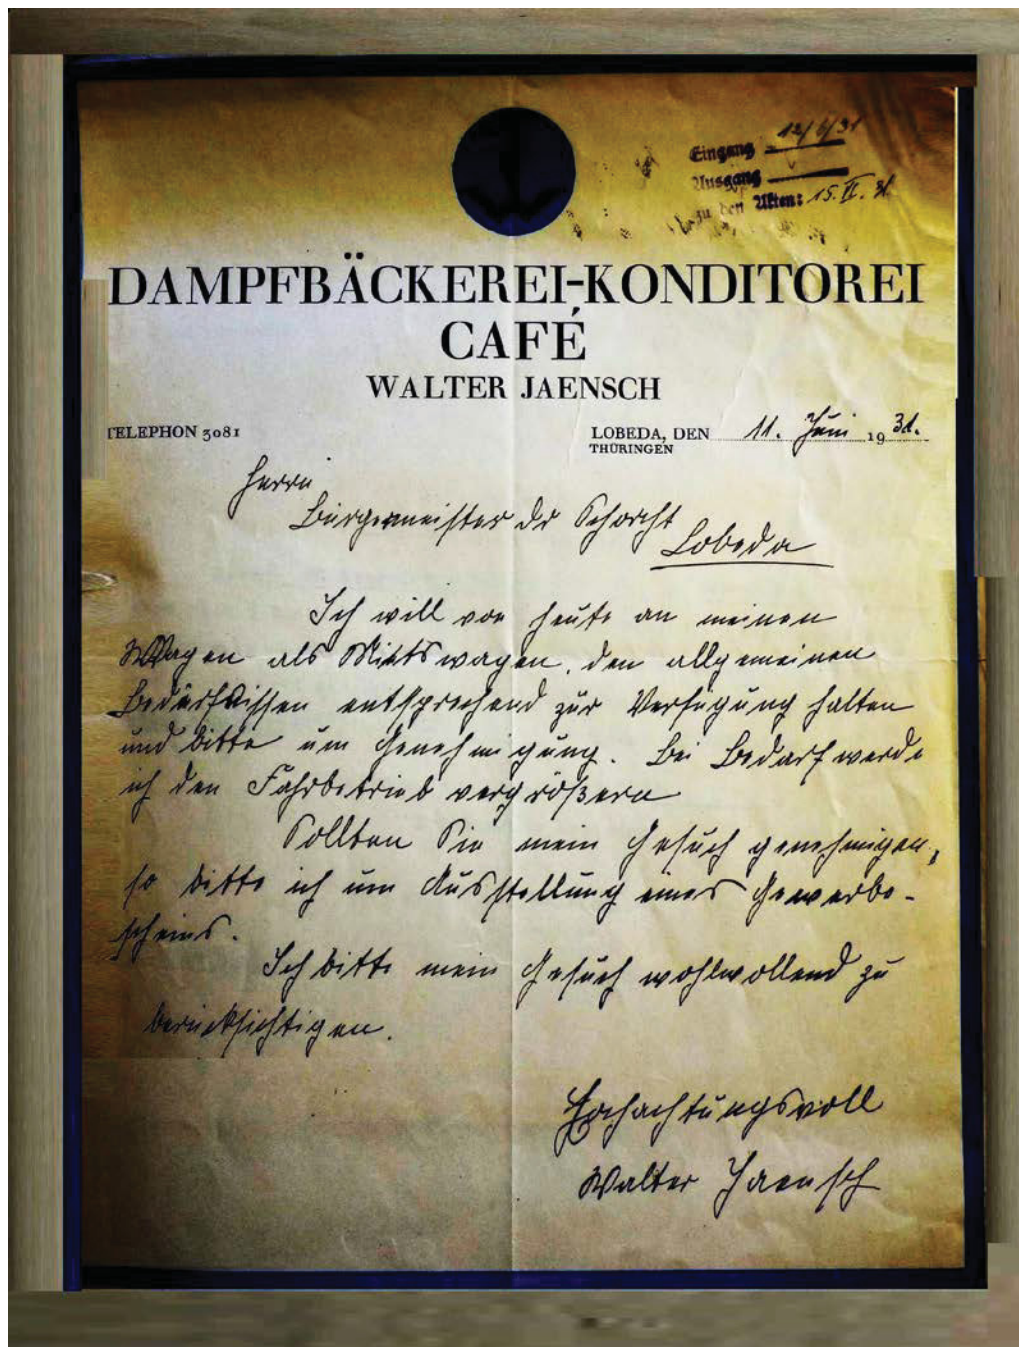 Eingang 12/6/31
Ausgang
zu den Akten: 15. VI. 31
DAMPFBÄCKEREI-KONDITOREI
CAFÉ
WALTER JAENSCH
TELEPHON 3081
LOBEDA, DEN 11. Juni 1931.
THÜRINGEN
Herrn
Bürgermeister Dr Schorcht
Lobeda
Ich will von heute an meinen
Wagen als Mietswagen, den allgemeinen
Bedürfnissen entsprechend zur Verfügung halten
und bitte um Genehmigung. Bei Bedarf werde
ich den Fahrbetrieb vergrößern
Sollten Sie mein Gesuch genehmigen,
so bitte ich um Ausstellung eines Gewerbe-
scheins.
Ich bitte mein Gesuch wohlwollend zu
berücksichtigen.
Hochachtungsvoll
Walter Jaensch